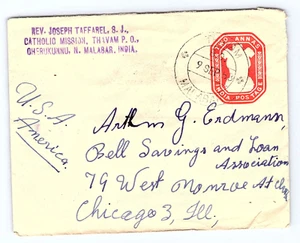 REV. JOSEPH TAFFAREL, S. J.,
CATHOLIC MISSION, THAVAM P. O.,
CHERUKUNNU, N. MALABAR, INDIA.
TWO ANNAS
INDIA POSTAGE
U.S.A.
America.
Arthur G. Erdmann,
Bell Savings and Loan
Association
79 West Monroe St
Chicago 3, Ill,